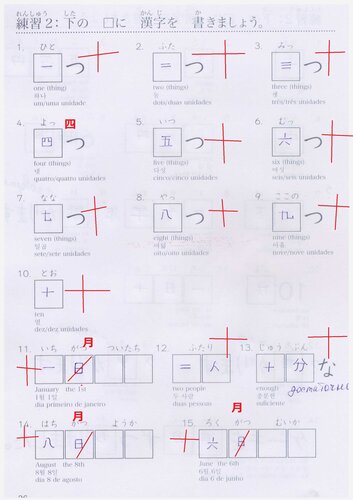 れんしゅう した かんじ か
練習2:下の □に 漢字を 書きましょう。
1. ひと 2. ふた 3. みっ
一つ 二つ 三つ
one (thing) two (things) three (things)
하나 둘 셋
um/uma unidade dois/duas unidades três/três unidades
4. よっ 四 5. いつ 6. むっ
四つ 五つ 六つ
four (things) five (things) six (things)
넷 다섯 여섯
quatro/quatro unidades cinco/cinco unidades seis/seis unidades
7. なな 8. やっ 9. ここの
七つ 八つ 九つ
seven (things) eight (things) nine (things)
일곱 여덟 아홉
sete/sete unidades oito/oito unidades nove/nove unidades
10. とお
十
ten
열
dez/dez unidades
月
11. いち がつ ついたち 12. ふたり 13. じゅう ぶん
一日 二人 十分な
January the 1st two people enough
достаточный
1월 1일 두 사람 충분한
dia primeiro de janeiro duas pessoas suficiente
月 月
14. はち がつ ようか 15. ろく がつ むいか
八日 六日
August the 8th June the 6th
8월 8일 6월 6일
dia 8 de agosto dia 6 de junho